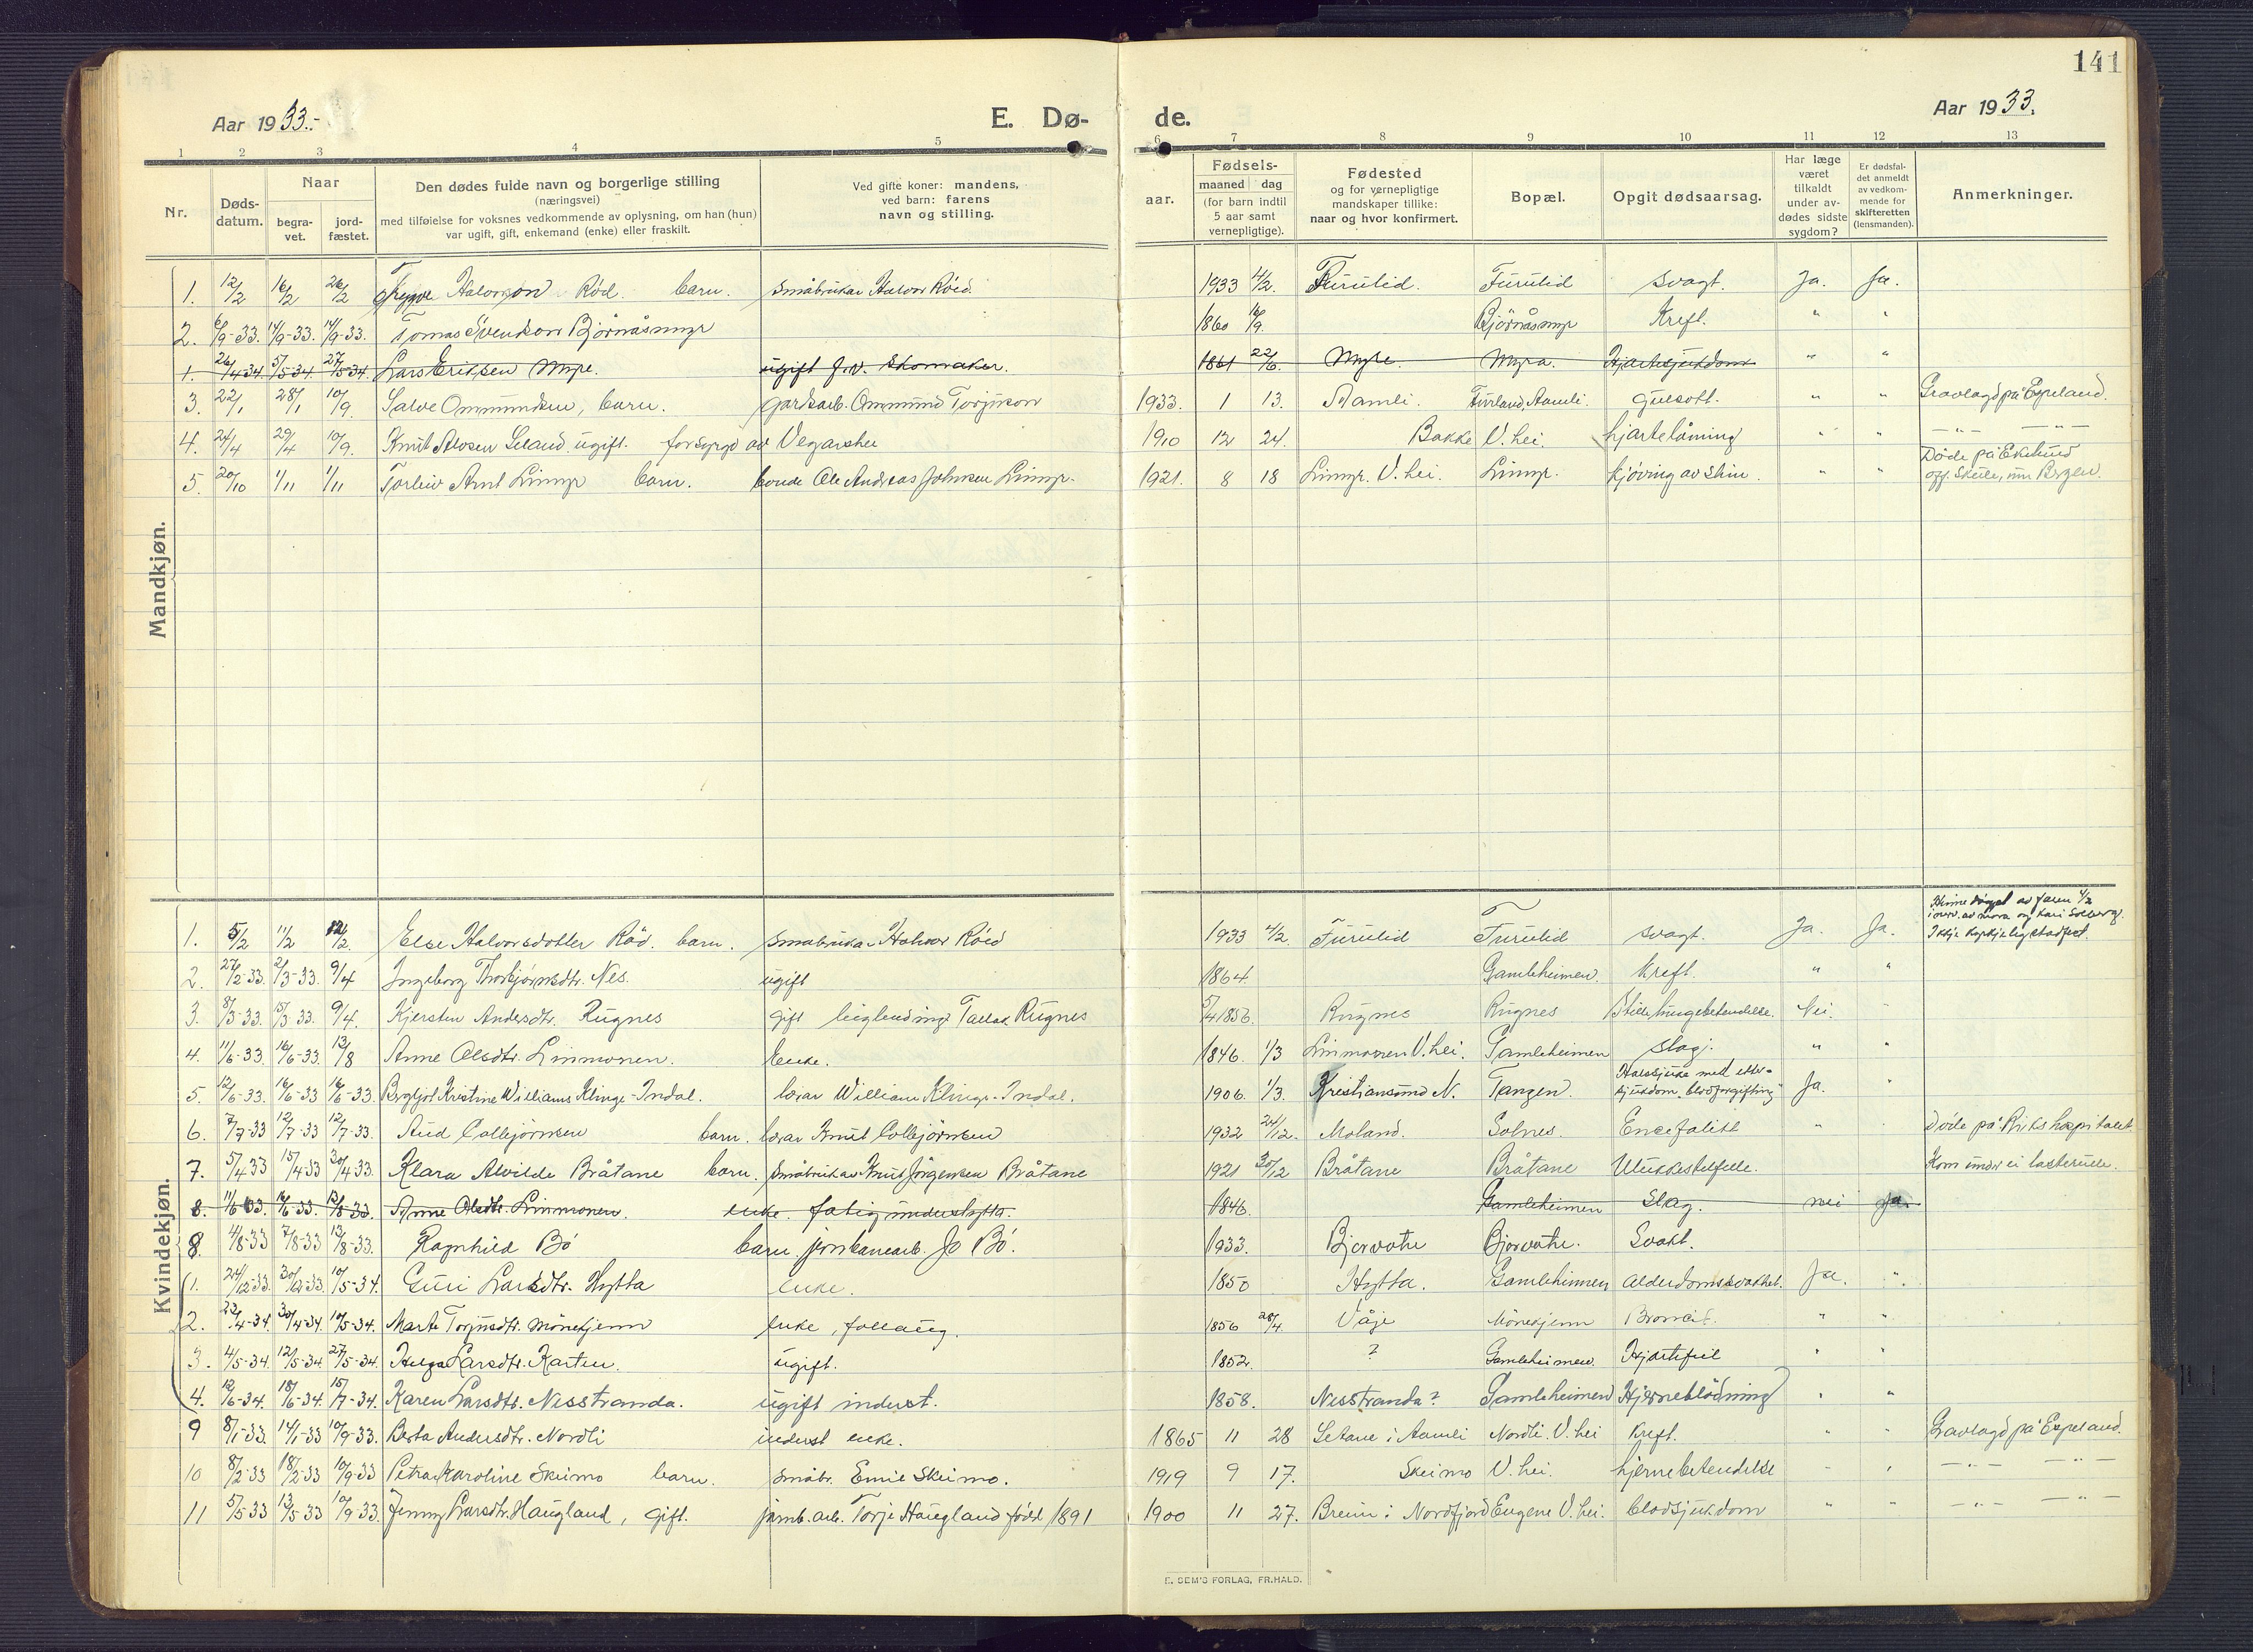 141
Aar 1933.-
E. Dø-
de.
Aar 1933.
1 2 3 4 5 6 7 8 9 10 11 12 13
Nr.
Døds-
datum.
Naar
begra-
vet.
jord-
fæstet.
Den dødes fulde navn og borgerlige stilling
(næringsvei)
med tilføielse for voksnes vedkommende av oplysning, om han (hun)
var ugift, gift, enkemand (enke) eller fraskilt.
Ved gifte koner: mandens,
ved barn: farens
navn og stilling.
Fødsels-
aar.
maaned dag
(for barn indtil
5 aar samt
vernepligtige).
Fødested
og for vernepligtige
mandskaper tillike:
naar og hvor konfirmert.
Bopæl.
Opgit dødsaarsag.
Har læge
været
tilkaldt
under av-
dødes sidste
sygdom?
Er dødsfal-
det anmeldt
av vedkom-
mende for
skifteretten
(lensmanden).
Anmerkninger.
Mandkjøn.
1. 12/2 16/2 26/2 Trygve Halvorson Rød. barn. småbrukar Halvor Röed. 1933 4/2. Furulid. Furulid svagt. Ja. Ja.
2. 6/9-33. 14/9-33. 14/9-33. Tomas Svendson Björnåsmyr 1860 16/9. Björnåsmyr Kreft. " "
1. 26/4 34. 5/5-34. 27/5 34. Lars Eriksen Myre. ugift f.v. Skomaker. 1861 22/6. Myre. Myra. Hjartesjukdom " "
3. 22/1 28/1 10/9. Salve Ommundsen, barn. gardsarb. Ommund Torjuson 1933. 1 13. Aamli. Furland, Aamli. Gulsott. " " Gravlagd på Espeland.
4. 24/4 29/4 10/9. Knut Alvsen Leland ugift. forsyrgd av Vegarshei 1910 12 24. Bakke V. hei. hjartelåming " " -"- -"-
5. 20/10 1/11 1/11 Torleiv Arnt Limyr barn. bonde Ole Andreas Johnsen Limyr. 1921. 8 18 Limyr. V. hei. Limyr. kjøving av skin. " " Døde på Eklund
off. Skule, nær Bergen.
Kvindekjøn.
1. 5/2 11/2 12/2. Else Halvorsdotter Rød. barn. småbrukar Halvor Röed 1933 4/2. Furulid Furulid svagt. Ja. Ja. Heime døypt av faren 4/2
i overv. av mora og Kari Solberg.
Ikkje kyrkjeleg stadfest.
2. 27/2-33. 2/3-33. 9/4 Ingeborg Thorbjørnsdtr. Nes. ugift 1864. Gamleheimen. Kreft. " "
3. 8/3-33. 15/3 33. 9/4. Kjersten Andersdtr. Rugnes gift leiglending Tallak Rugnes 5/4 1856. Rugnes Rugnes Stille lungebetendelse. Nei. "
4. 11/6-33. 16/6-33. 13/8 Anne Olsdtr. Limmonen. Enke. 1846. 1/3 Limmonen V. hei. Gamleheimen slag. " "
5. 12/6-33. 16/6-33 16/6-33. Bergljot Kristine Williams Klinge-Indal. lærar William Klinge-Indal. 1906. 1/3. Kristiansund N. Tangen. Halssjuke med etter-
sjukdom blodforgiftning Ja. "
6. 7/7-33 12/7-33 12/7-33. Aud Colbjörnsen barn. lærar Knut Colbjörnsen 1932 24/12. Moland. Solnes. Encefalitt " " Døde på Rikshospitalet
7. 5/4 33 15/4-33 30/4 33. Klara Alvilde Bråtane barn. småbrukar Knut Jörgensen Bråtane 1921 30/12 Bråtane Bråtane Ulukkestilfelle. Kom under ei lasterulle.
8. 11/6 33. 16/6-33. 13/8-33. Anne Olsdtr. Limmonen. enke. fatigunderstytta. 1846. Gamleheimen Slag. nei Ja.
8. 4/8-33 7/8-33 13/8-33. Ragnhild Bö barn. jernbanearb. Jo Bö. 1933. Bjorvatn Bjorvatn. Svakt.
1. 24/12-33. 30/12-33. 10/5-34. Guri Larsdtr. Hytta enke. 1850 Hytta. Gamleheimen alderdomssvakhet. Ja. ".
2. 23/4-34. 30/4-34. 10/5-34. Marte Torjusdtr. Mönekjenn enke, follaug. 1856 28/4. Våje Mönekjenn Bronkit. " "
3. 4/5-34. 12/5-34. 27/5-34. Helga Larsdtr. Karten. ugift. 1852. ? Gamleheimen. Hjartefeil " "
4. 12/6-34. 18/6-34. 15/7-34. Karen Larsdtr. Nesstranda. ugift inderst. 1858. Nesstranda? Gamleheimen Hjerneblödning " "
9 8/1-33. 14/1-33 10/9-33. Berta Andersdtr. Nordli inderst enke. 1865 11 28 Setane i Aamli Nordli. V. hei kreft. " " Gravlagd på Espeland.
10 8/2-33 18/2-33 10/9-33 Petra Karoline Skeimo barn. småbr. Emil Skeimo. 1919 9 17. Skeimo V. hei. hjernebetendelse " " -"- -"-
11 5/5-33 13/5-33 10/9-33. Jenny Larsdtr. Haugland, gift. jarnb. arb. Torje Haugland född 1891 1900 11 27. Breim i Nordfjord Eugene V. hei. blodsjukdom " " -"- -"-
E. SEM'S FORLAG, FR.HALD.